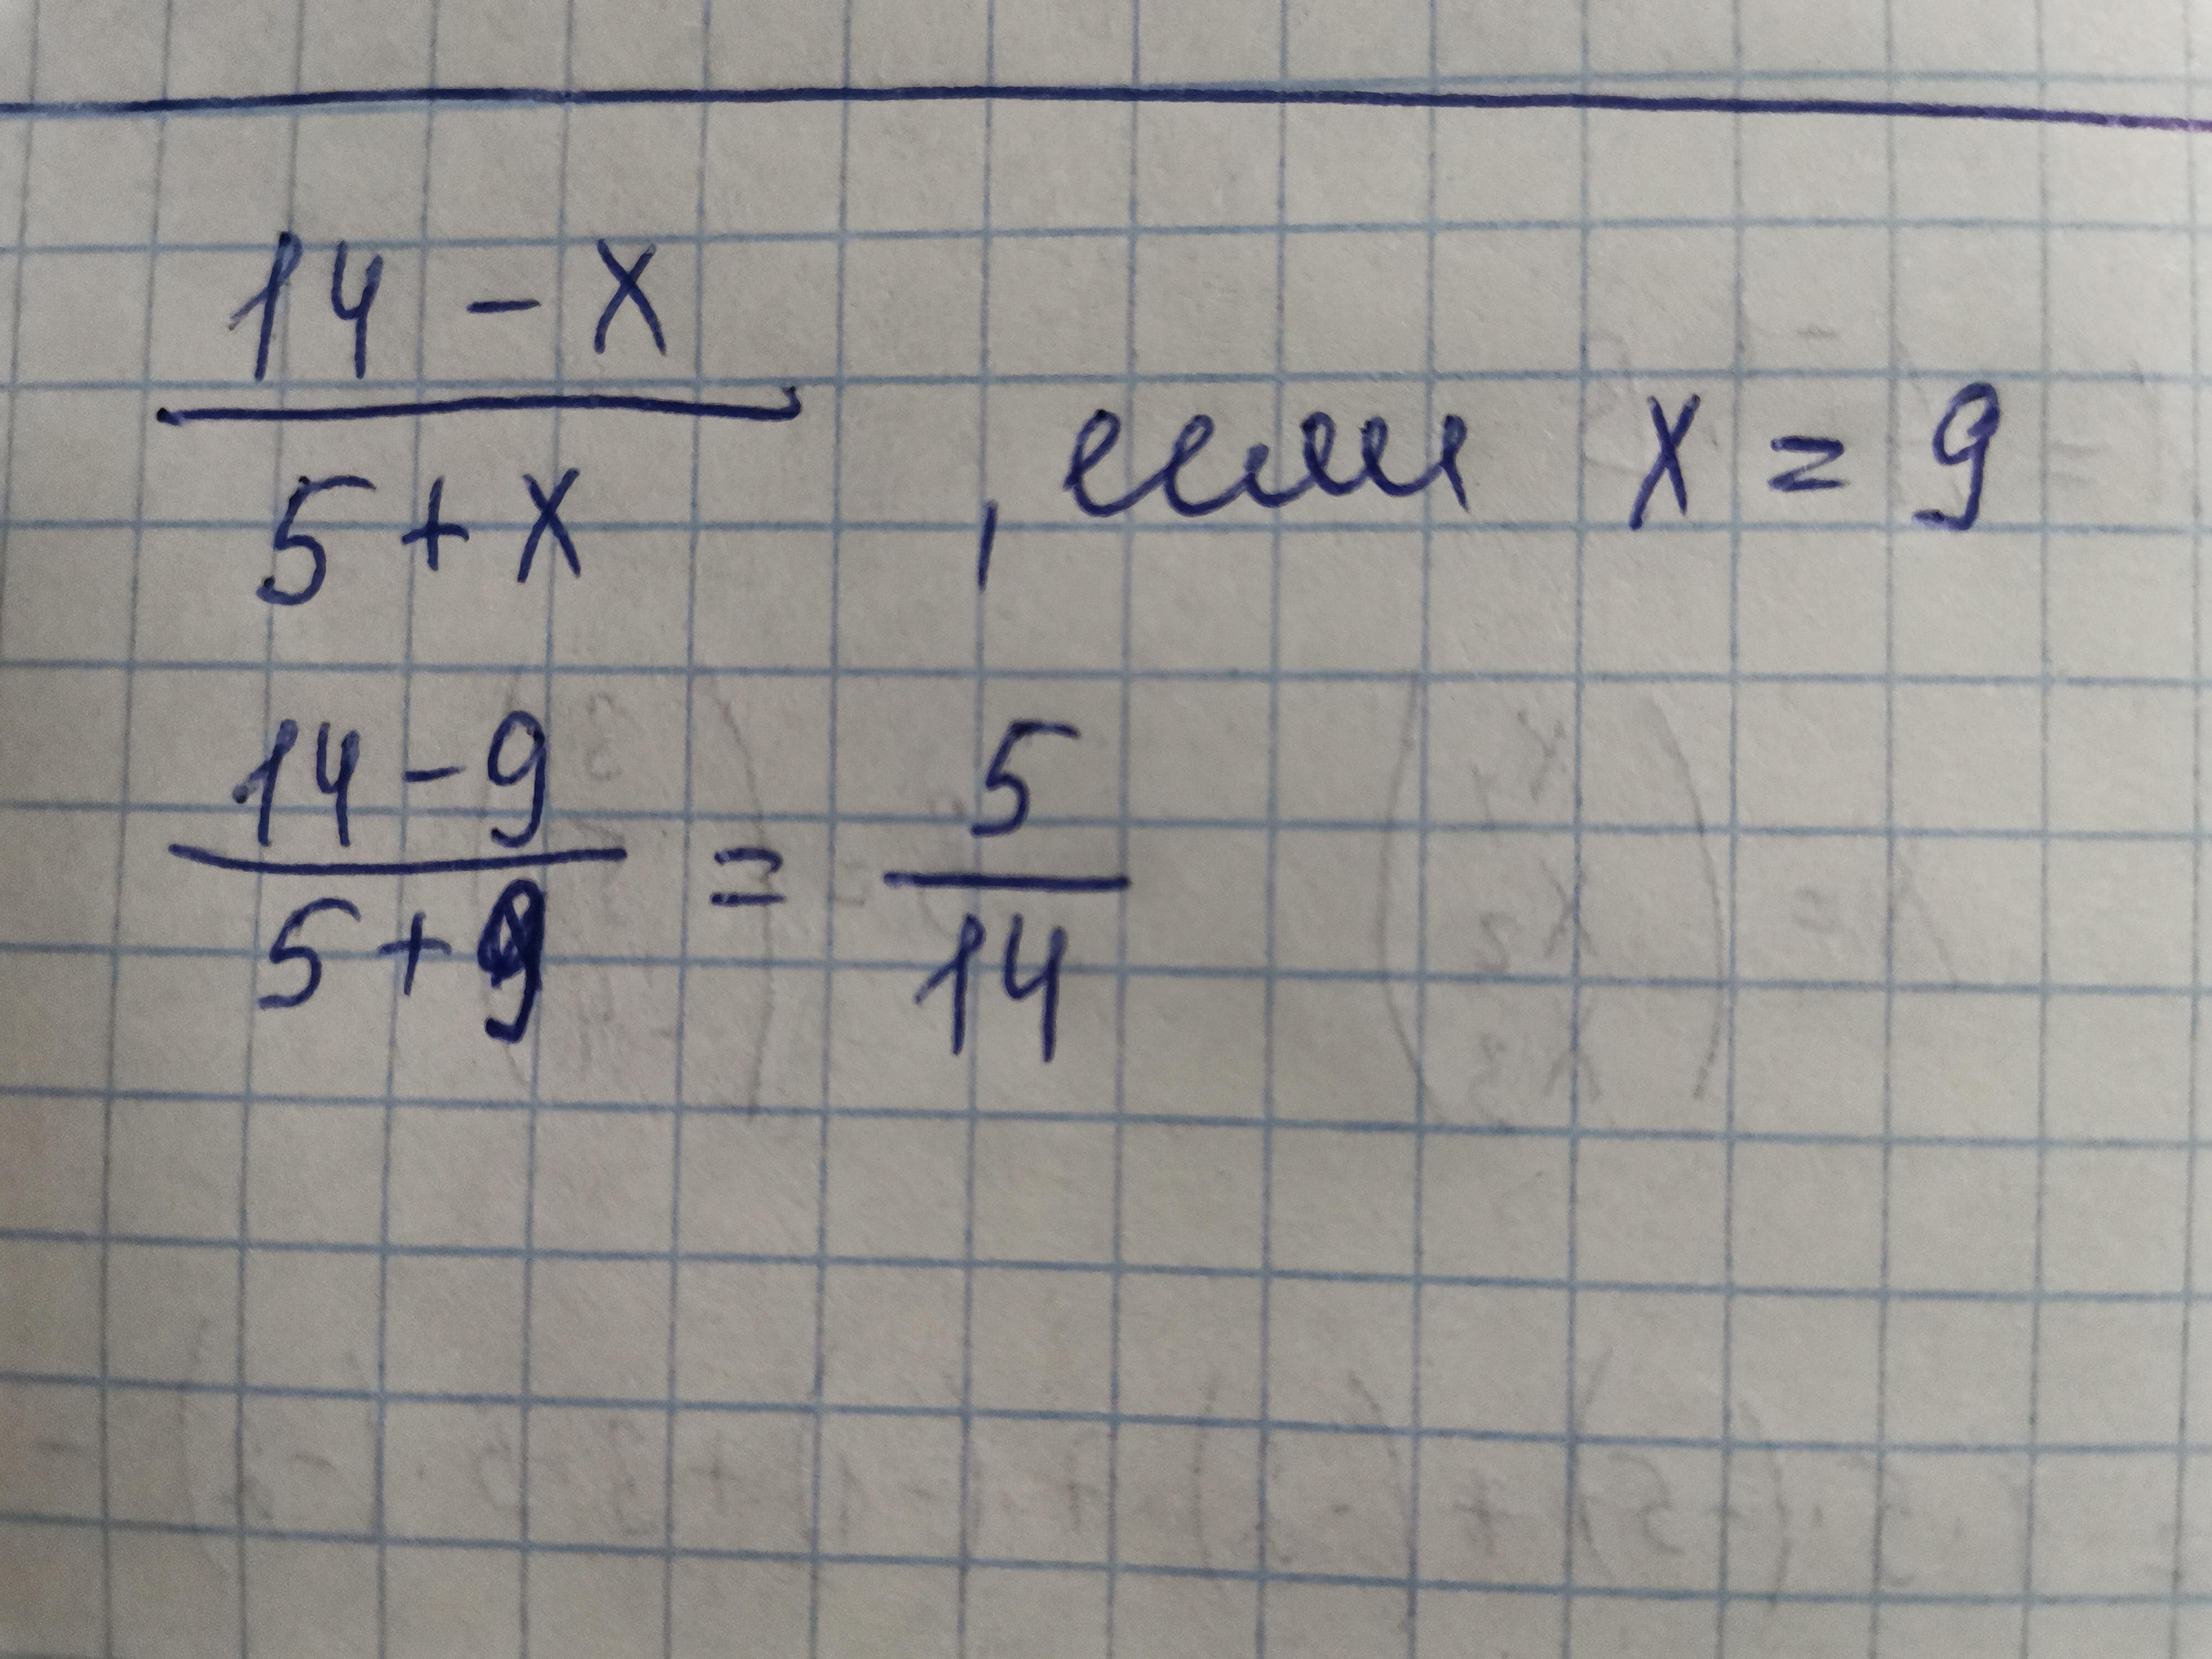 14 - x
5 + x , если x = 9
14 - 9
5 + 9 = 5
14